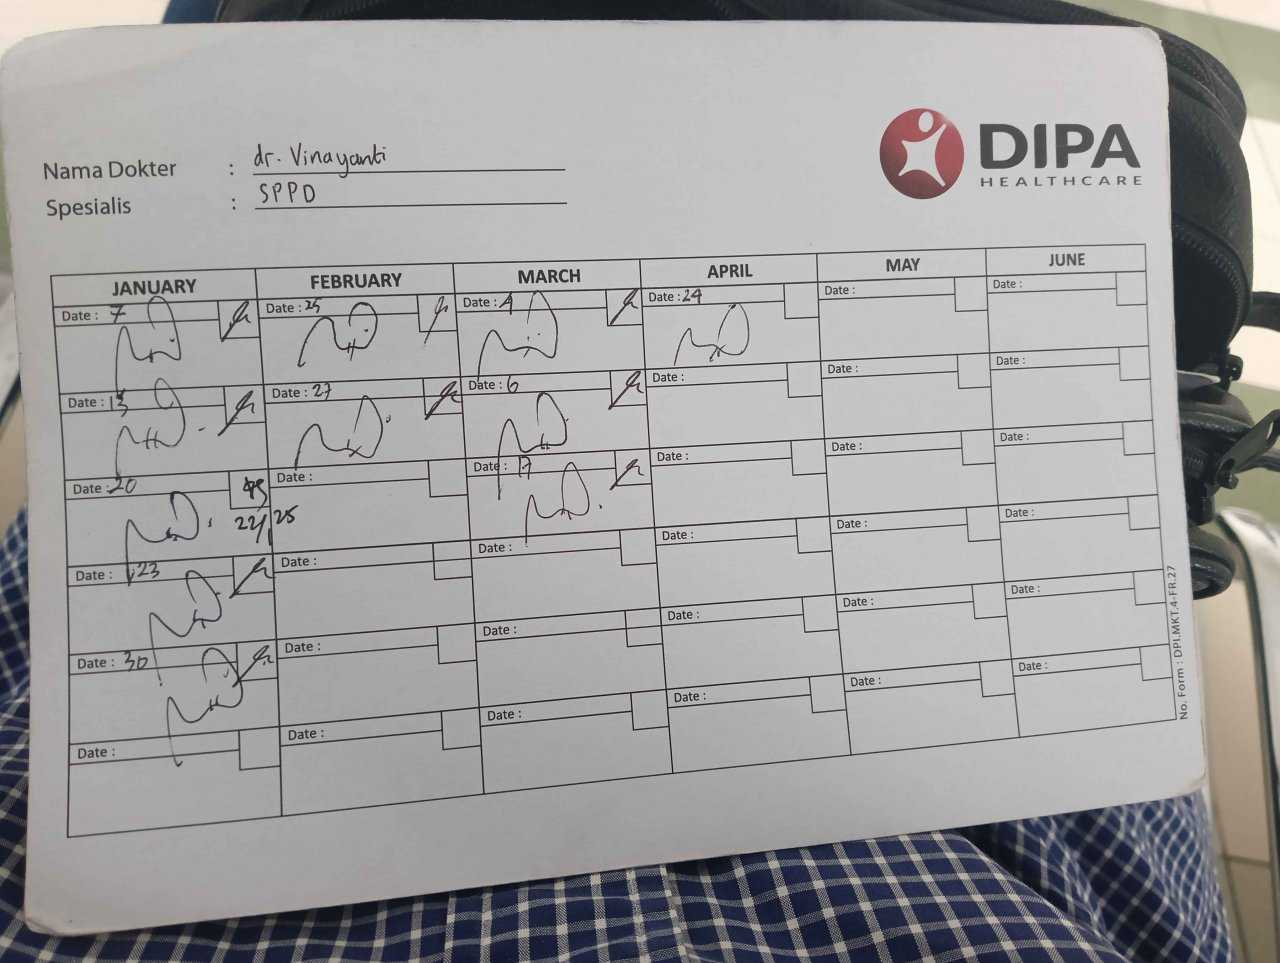 DIPA
HEALTHCARE
Nama Dokter : dr. Vinayanti
Spesialis : SPPD
JANUARY FEBRUARY MARCH APRIL MAY JUNE
Date : 7 Date : 25 Date : 4 Date : 24 Date : Date :
Date : 13 Date : 27 Date : 6 Date : Date : Date :
Date : 20 Date : Date : 17 Date : Date : Date :
22/1 25
Date : 23 Date : Date : Date : Date : Date :
Date : 30 Date : Date : Date : Date : Date :
Date : Date : Date : Date : Date : Date :
No. Form : DPI.MKT.4-FR.27